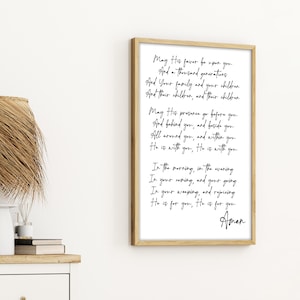 May His favor be upon you
And a thousand generations
And your family and your children
And their children, and their children
May His presence go before you
And behind you, and beside you
All around you, and within you
He is with you, He is with you
In the morning, in the evening
In your coming, and your going
In your weeping, and rejoicing
He is for you, He is for you
Amen